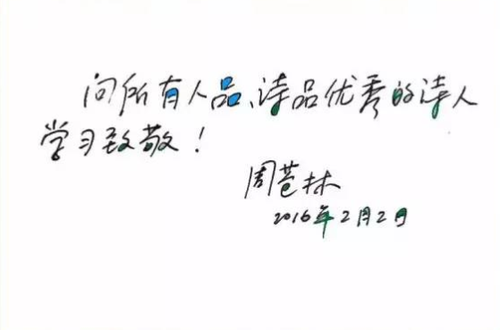 向所有人品、诗品优秀的诗人
学习致敬！
周苍林
2016年2月2日